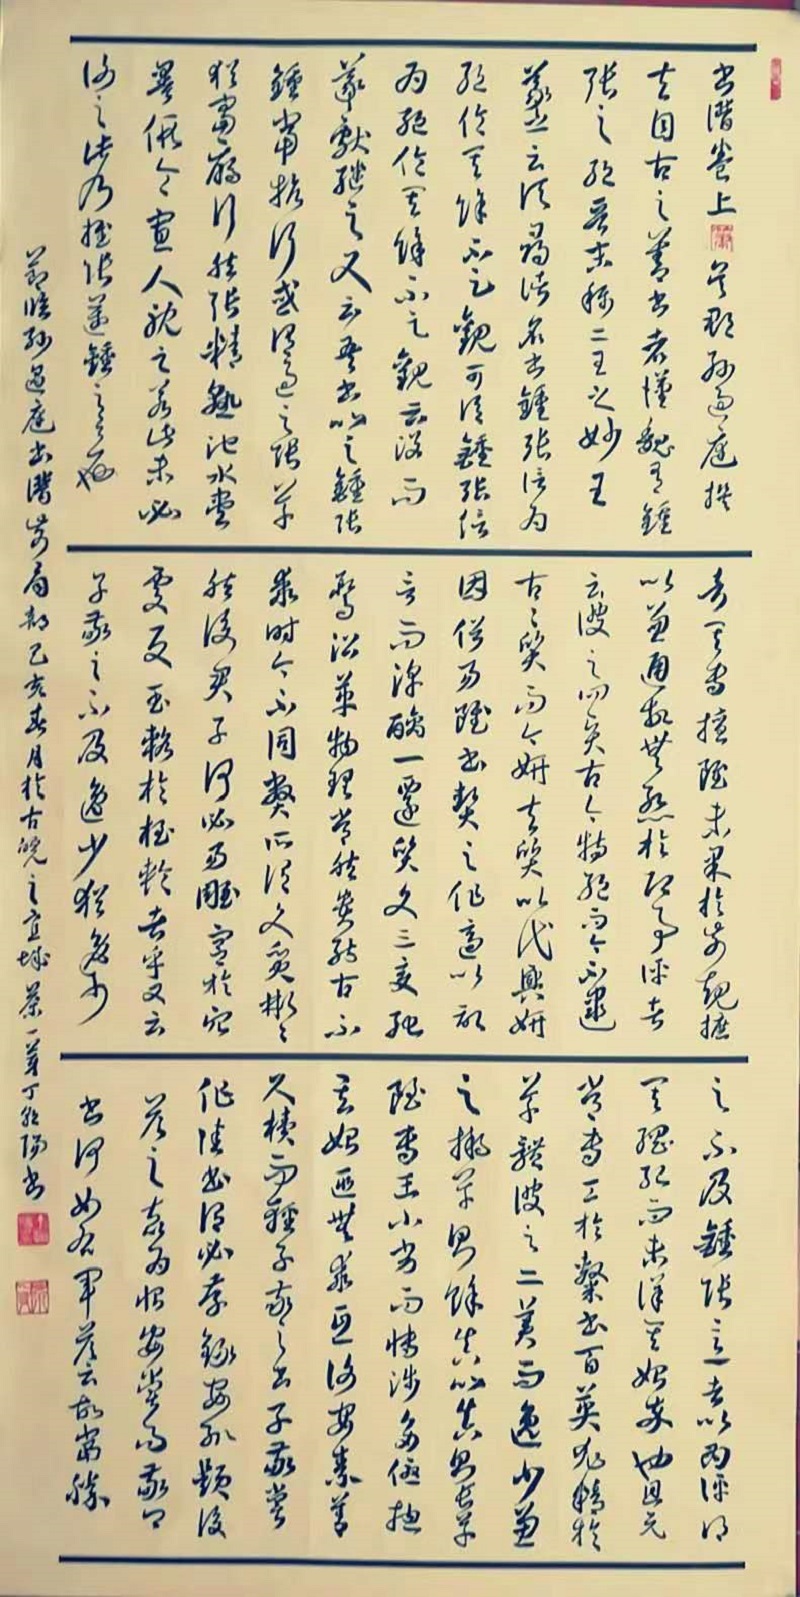 書譜卷上 吳郡孫過庭撰
夫自古之善書者漢魏有鍾
張之絕晉末稱二王之妙王
羲之云頃尋諸名書鍾張信為
絕倫其餘不足觀可謂鍾張信
為絕倫其餘不足觀云沒而
羲獻繼之又云吾書比之鍾張
鍾當抗行或謂過之張草
猶當雁行然張精熟池水盡
墨假令寡人耽之若此未必
謝之此乃推張邁鍾之意也
考其專擅雖未果於前規摭
以兼通故無慚於即事評者
云彼之四賢古今特絕而今不逮
古古質而今妍夫質以代興妍
因俗易雖書契之作適以記
言而淳醨一遷質文三變馳
騖沿革物理常然貴能古不
乖時今不同弊所謂文質彬彬
然後君子何必易雕宮於穴
處反玉輅於椎輪者乎又云
子敬之不及逸少猶逸少
之不及鍾張意者以為評得
其綱紀而未詳其始卒也且元
常專工於隸書百英尤精於
草體彼之二美而逸少兼
之擬草則餘真比真則長草
雖專工小劣而博涉多優總
其始匪無乖互謝安素善
尺牘而輕子敬之書子敬嘗
作佳書謂必存錄安輒題後
答之甚為恨安嘗問敬卿
書何如右軍答云故當勝
節臨孫過庭書譜前局部己亥春月於古皖之宜城 書